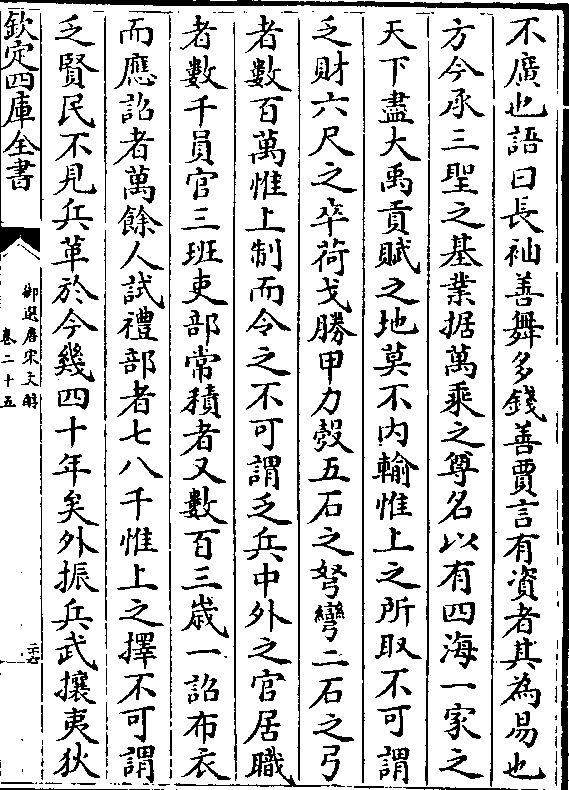 不廣也語曰長袖善舞多錢善賈言有資者其為易也
方今承三聖之基業据萬乘之尊名以有四海一家之
天下盡大禹貢賦之地莫不内輸惟上之所取不可謂
乏財六尺之卒荷戈勝甲力彀五石之弩彎二石之弓
者數百萬惟上制而令之不可謂乏兵中外之官居職
者數千員官三班吏部常積者又數百三歲一詔布衣
而應詔者萬餘人試禮部者七八千惟上之擇不可謂
乏賢民不見兵革於今幾四十年矣外振兵武攘夷狄
欽定四庫全書
御選唐宋文醇
卷二十五